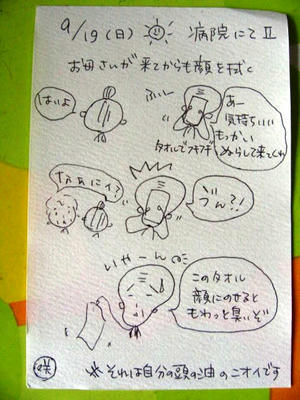 9/19(日) 病院にてⅡ
お母さんが来てからも顔を拭く
はいよ
ふぃー
あー
気持ちいい
もっかい
ぬらして来てくれ
タオルでフキフキ
なぁにィ?
づん?!
いやーん
このタオル
顔にのせると
もわっと臭いぞ
咲
※それは自分の頭の油のニオイです